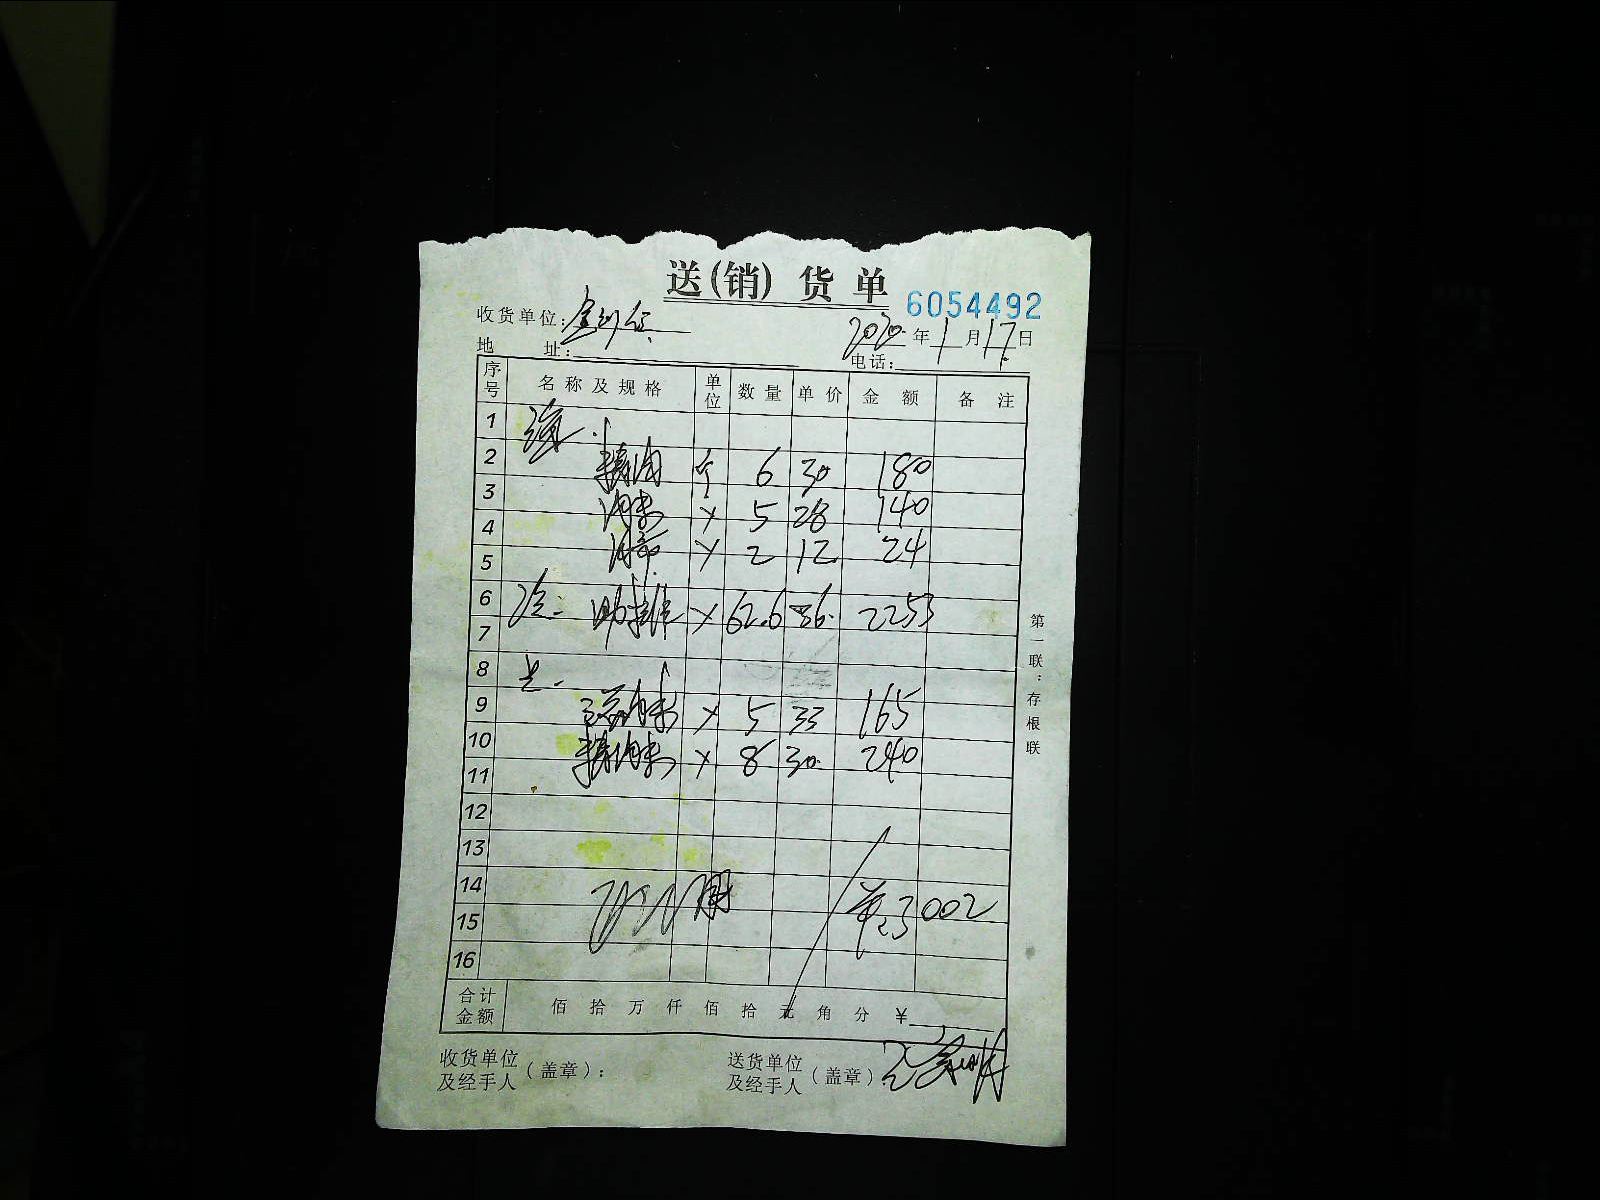 送(销)货单
6054492
收货单位:
2020年1月17日
地 址: 电话:
序号 名称及规格 单位 数量 单价 金额 备注
1
2 精肉 个 6 30 180
3 肉末 5 28 140
4 2 12 24
5
6 肋排 62.6 36. 2253
7
8
9 肉末 5 33 165
10 精肉末 8 30 240
11
12
13
14
15 单 3002
16
合计金额 佰 拾 万 仟 佰 拾 元 角 分 ¥
收货单位及经手人(盖章): 送货单位及经手人(盖章)
第一联:存根联